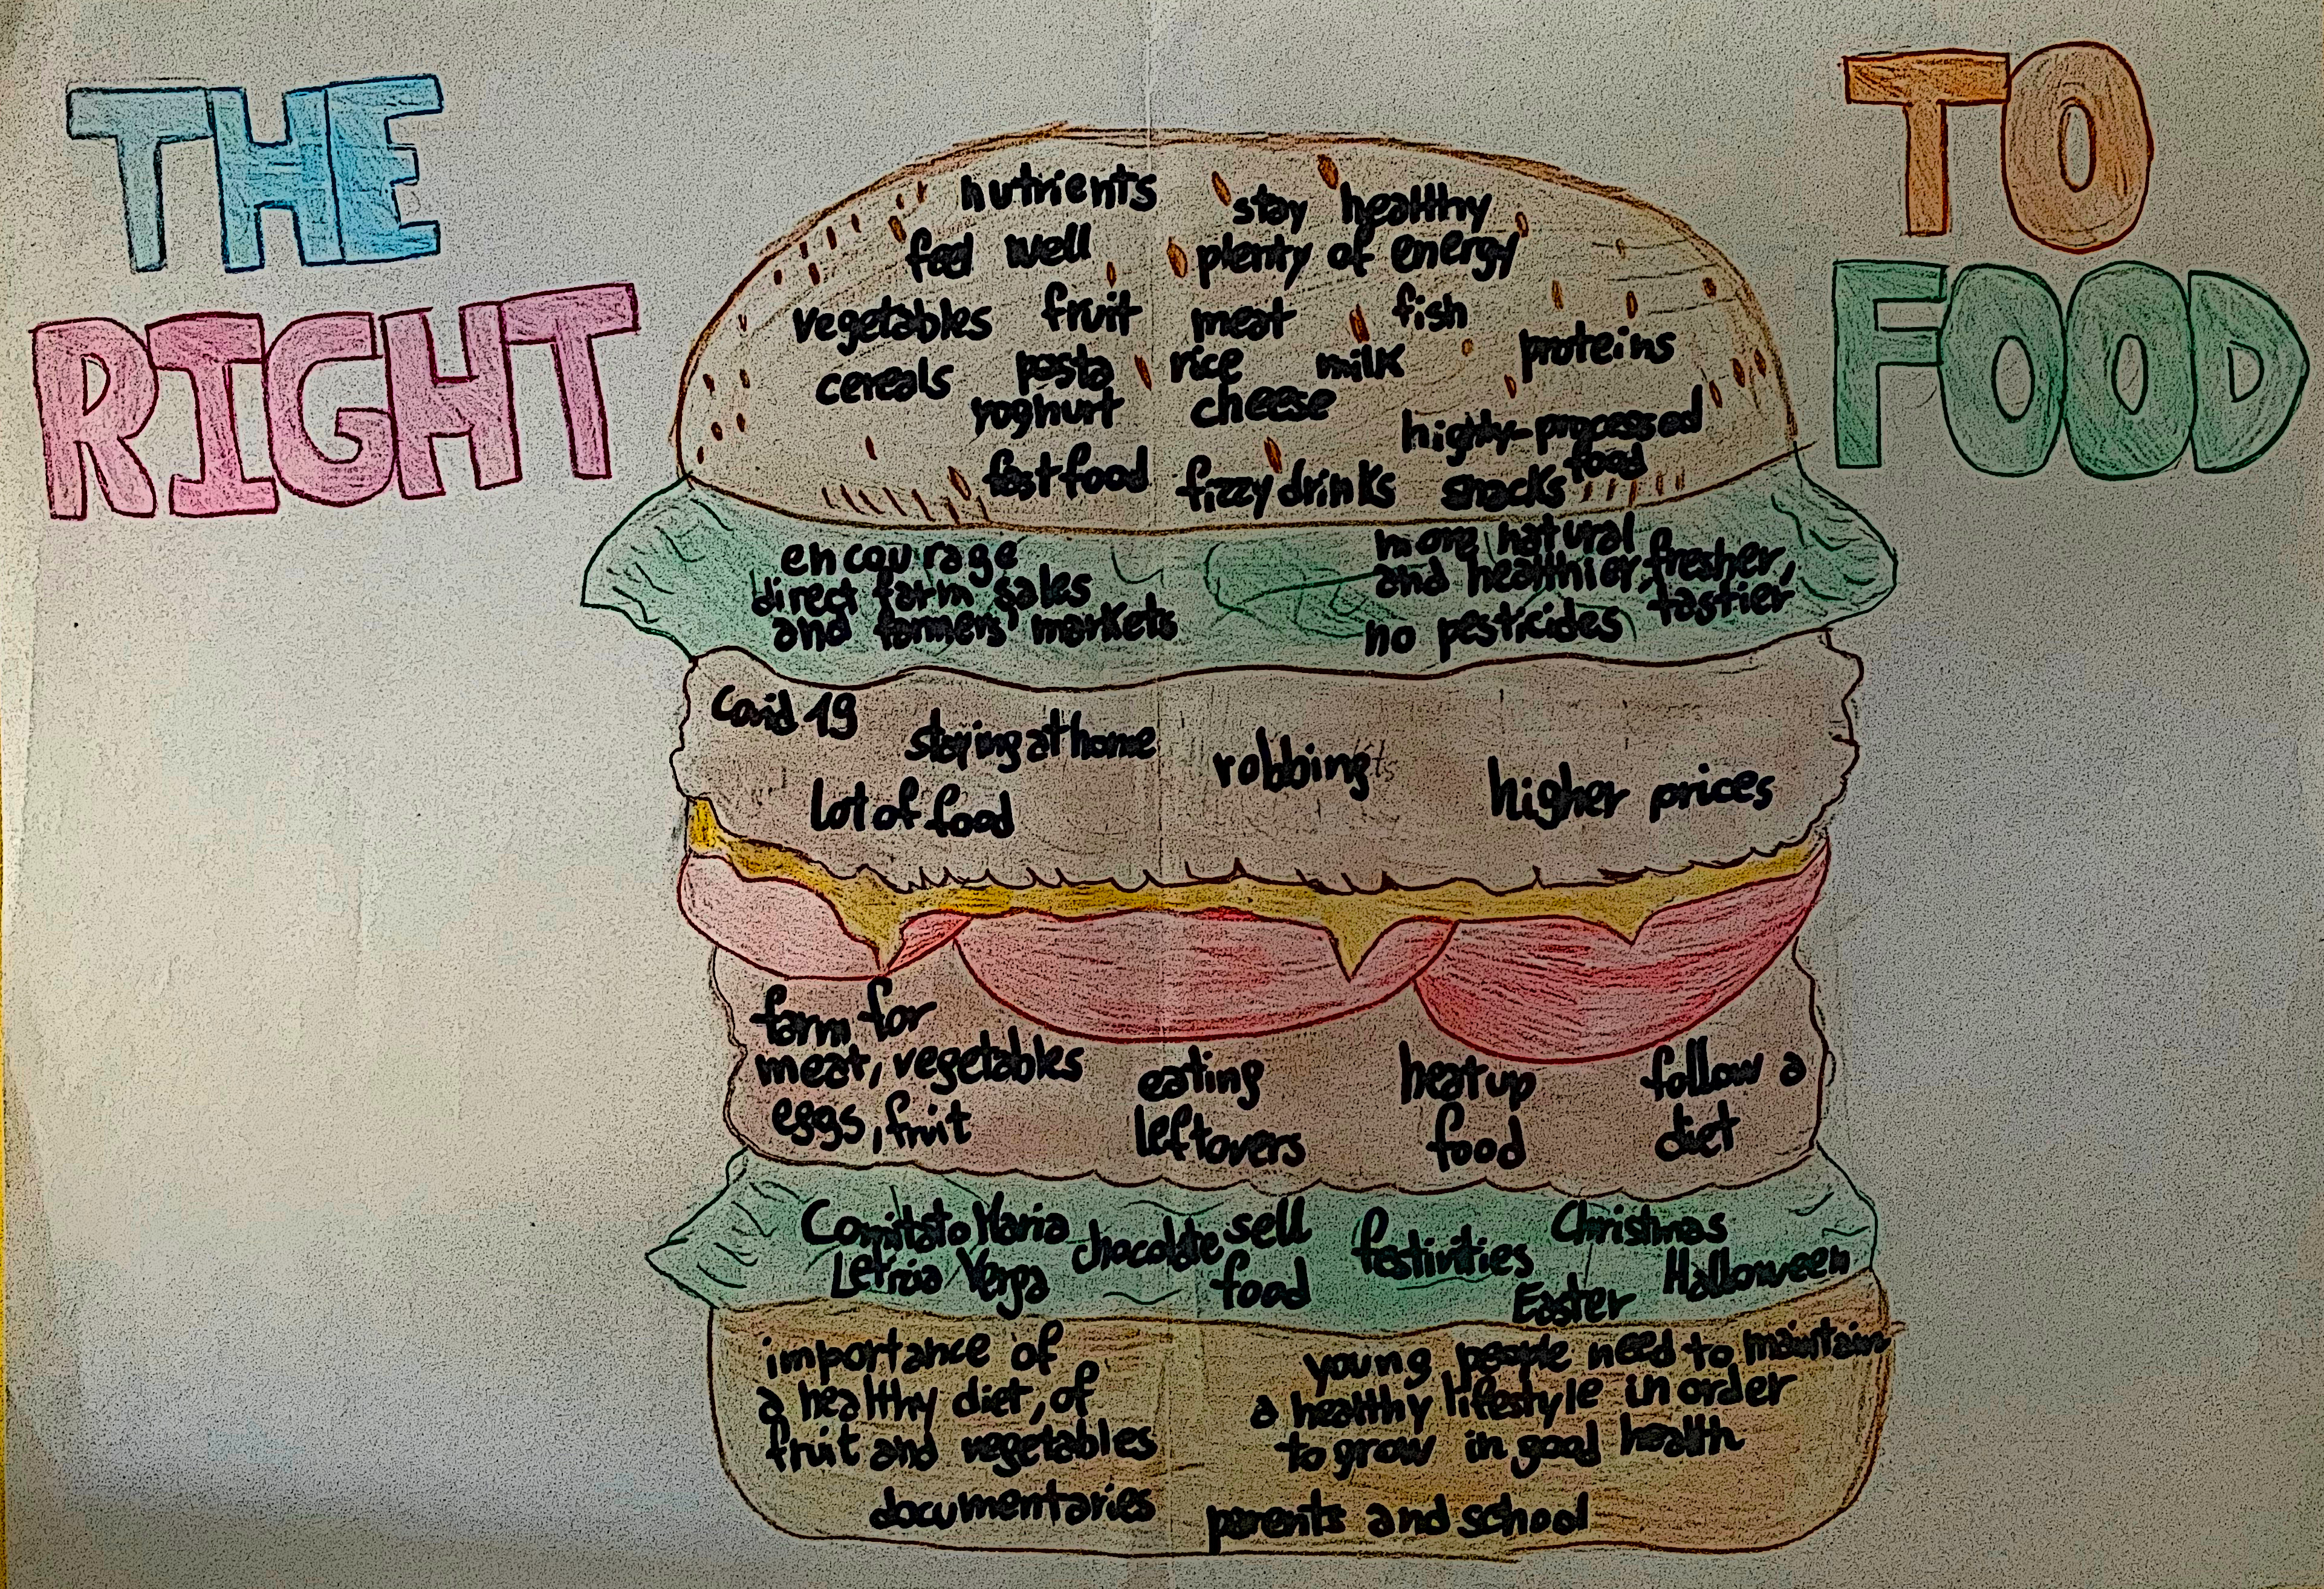 THE
RIGHT
TO
FOOD
nutrients
stay healthy
feel well
plenty of energy
vegetables fruit meat fish
proteins
cereals pasta rice milk
yoghurt cheese
highly-processed
food
fast food fizzy drinks snacks
encourage
direct farm sales
and farmers' markets
more natural
and healthier, fresher,
tastier
no pesticides
Covid 19
staying at home
robbing
higher prices
lot of food
farm for
meat, vegetables
eggs, fruit
eating
leftovers
heat up
food
follow a
diet
Comitato Maria
Letizia Verga
chocolate
sell
food
festivities
Christmas
Halloween
Easter
importance of
a healthy diet, of
fruit and vegetables
young people need to maintain
a healthy lifestyle in order
to grow in good health
documentaries
parents and school